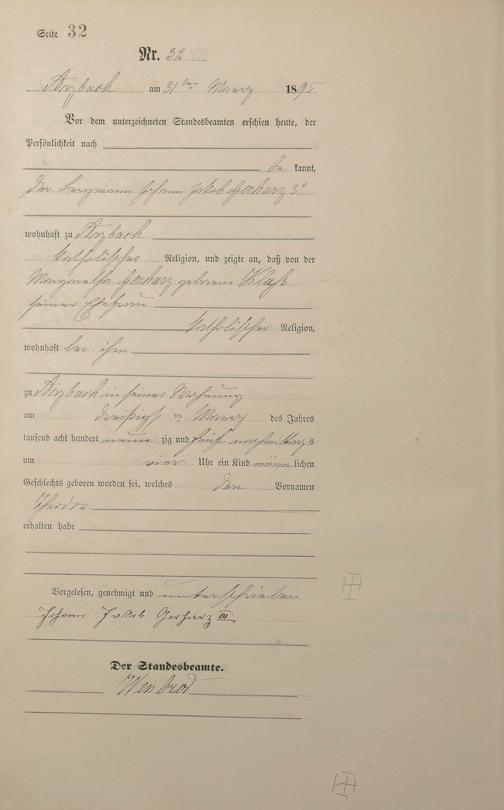 Seite 32
Nr. 32
Arzbach am 31ten Maerz 1895
Vor dem unterzeichneten Standesbeamten erschien heute, der
Persönlichkeit nach
be kannt,
der Bergmann Johann Jakob Gerharz 3r
wohnhaft zu Arzbach
katholischer Religion, und zeigte an, daß von der
Margaretha Gerharz geborene Klaß
seiner Ehefrau
katholischer Religion,
wohnhaft bei ihm
zu Arzbach in seiner Wohnung
am dreißigsten Maerz des Jahres
tausend acht hundert neunzig und fünf nachmittags
um vier Uhr ein Kind männlichen
Geschlechts geboren worden sei, welches den Vornamen
Theodor
erhalten habe
Vorgelesen, genehmigt und unterschrieben
Johann Jakob Gerharz III
Der Standesbeamte.
Weinbrod